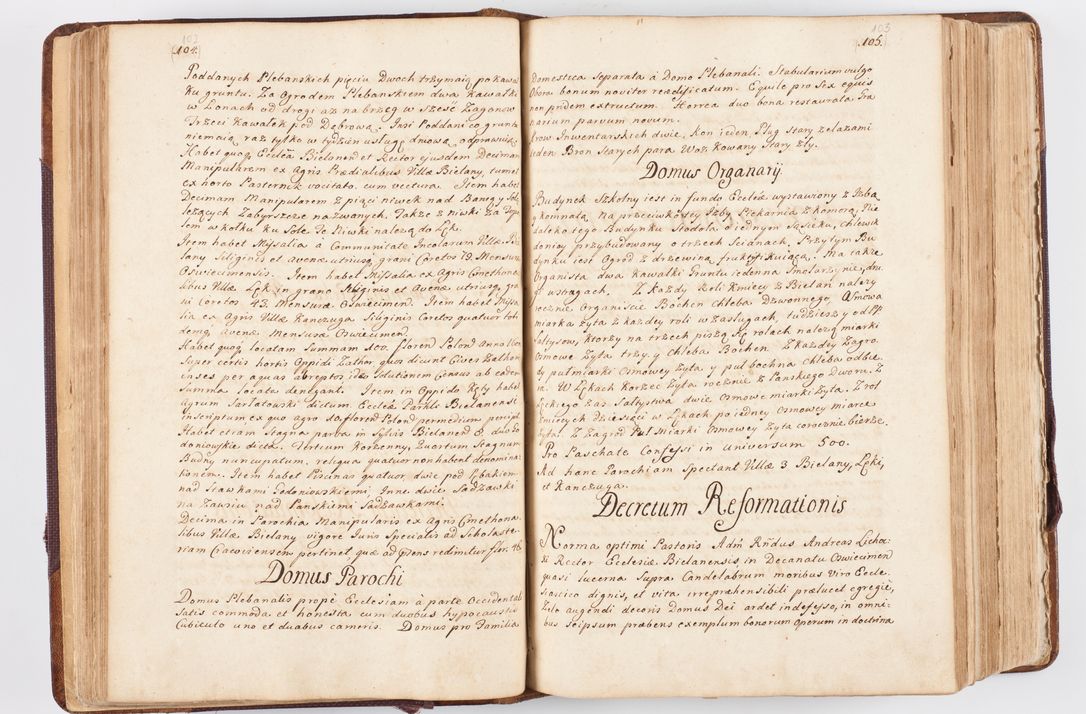 102
104.
Poddanych Plebanskich pięciu Dwoch trzymaią po kawał
ku gruntu. Za Ogrodem Plebanskiem dwa kawałki
w Łonach od drogi aż na brzeg w Sześć Zagonow
Trzeci kawałek pod Dębrową. Insi Poddani co gruntu
niemaią raz tylko w tydzień usługę dniową odprawuią.
Habet quoq Ecclea Bielanen et Rector ejusdem Decimam
Manipularem ex Agris Prædialibus Villæ Bielany, tum et
ex horto Pasternik vocitato cum vectura. Item habet
Decimam Manipularem z pięci niwek nad Banęą y Sołę
leżących Zabyrszcze nazwanych. Także z niwki za Topo
lem w kołku ku Sole Te Niwki należą do Łęk.
Item habet Missalia à Communitate Incolarum Villæ Bie
lany Siliginis et Avenæ utriusq grani Coretos 19. Mensuræ
Oswiecimensis. Item habet Missalia ex Agris Cmethona
libus Villæ Łęk in grano Siliginis et Avenæ utriusq gra
ni Coretos 43. Mensuræ Oswiecimen. Item habet Missa
lia ex Agris Villæ Kanczuga Siliginis Coretos quatuor toti
demq Avenæ Mensuræ Oswiecimen.
Habet quoq locatam Summam 100. floren Polon Anno
Super certis hortis Oppidi Zathor quos dicunt Cives Zathori
enses per aquas abreptos ideo Solutionem Census ab eadem
Summa locata denegant. Item in Oppido Kęty habet
agrum Sarlatowski dictum Ecclea Parkli Bielanensi
inscriptum ex quo agro floren Polon per medium percipit
Habet etiam Stagna parva in Sylvis Bielanen 8. duo Go
doniowskie dicta. Tertium Korzenny, Quartum Stagnum
Budny nuncupatum, reliqua quatuor non habent denomina
tionem. Item habet Piscinas quatuor, dwie pod Łękakiem
nad Stawkami Godoniowskiemi. Inne dwie Sadzawki
na Zawsiu nad Panskiemi Sadzawkami.
Decima in Parochia Manipularis ex Agris Cmethona
libus Villæ Bielany vigore Juris Specialis ad Scholaste
riam Cracoviensem pertinet quæ ad præsens redimitur flor. 46
Domus Parochi
Domus Plebanalis propè Ecclesiam à parte Occidentali
Satis commoda et honesta cum duobus hypocaustis
Cubiculo uno et duabus cameris. Domus pro Familia
103
105.
Domestica Separata à Domo Plebanali. Stabularium vulgo
Obora bonum noviter readificatum. Equile pro Sex equis
non pridem extructum. Horrea duo bona restaurata Gra
narium parvum novum.
Krow Inwentarskich dwie, Kon ieden, Pług Stary z elazami
ieden Bron Starych para Woz Kowany Stary zły.
Domus Organarij
Budynek Szkolny iest in fundo Ecclea wystawiony z Izbą
y komnatą Na przeciwko tey Izby Piekarnia z komorą, Nie
daleko tego Budynku Stodoła o iednym Sąsieku, chlewik
do niey przybudowany o trzech Scianach. Przy tym Bu
dynku iest Ogrod z drzewiną fruktyfikuiącą. Ma także
Organista dwa kawałki Gruntu iedenna Smolarzynie, dru
gi w Stragach. Z każdy Roli kmiecy z Bielan należy
rocznie Organiscie Bochen chleba Dzwonnego, Osmowa
miarka żyta z każdey roli w zasługach, tudziesz y od PP
Sołtysow, ktorzy na trzech piszą się rolach należą miarki
Osmowe Żyta trzy, y Chleba Bochen. Z każdey Zagro
dy puł miarki Osmowey Żyta y puł bochna chleba odbie
ra. W Łękach korzec żyta rocznie z Panskiego Dworu. Z
Łęckiego zas Sołtystwa dwie Osmowe miarki żyta. Z rol
kmiecych Dziesięci w Łękach po iedney Osmowey miarce
żyta. Z Zagrod Puł miarki Osmowey żyta corocznie bierze.
Pro Paschate Confessi in universum 500.
Ad hanc Parochiam Spectant Villæ 3 Bielany, Łęki,
et Kanczuga.
Decretum Reformationis
Norma optimi Pastoris Adm Rndus Andreas Licho
ski Rector Ecclesiæ Bielanensis, in Decanatu Oswiecimen
quasi lucerna Supra Candelabrum moribus Viro Eccle
siastico dignis, et vita irreprahensibili prælucet egregiè,
Zelo augendi decoris Domus Dei ardet indefesso, in omni
bus Seipsum præbens exemplum bonorum Operum in doctrina